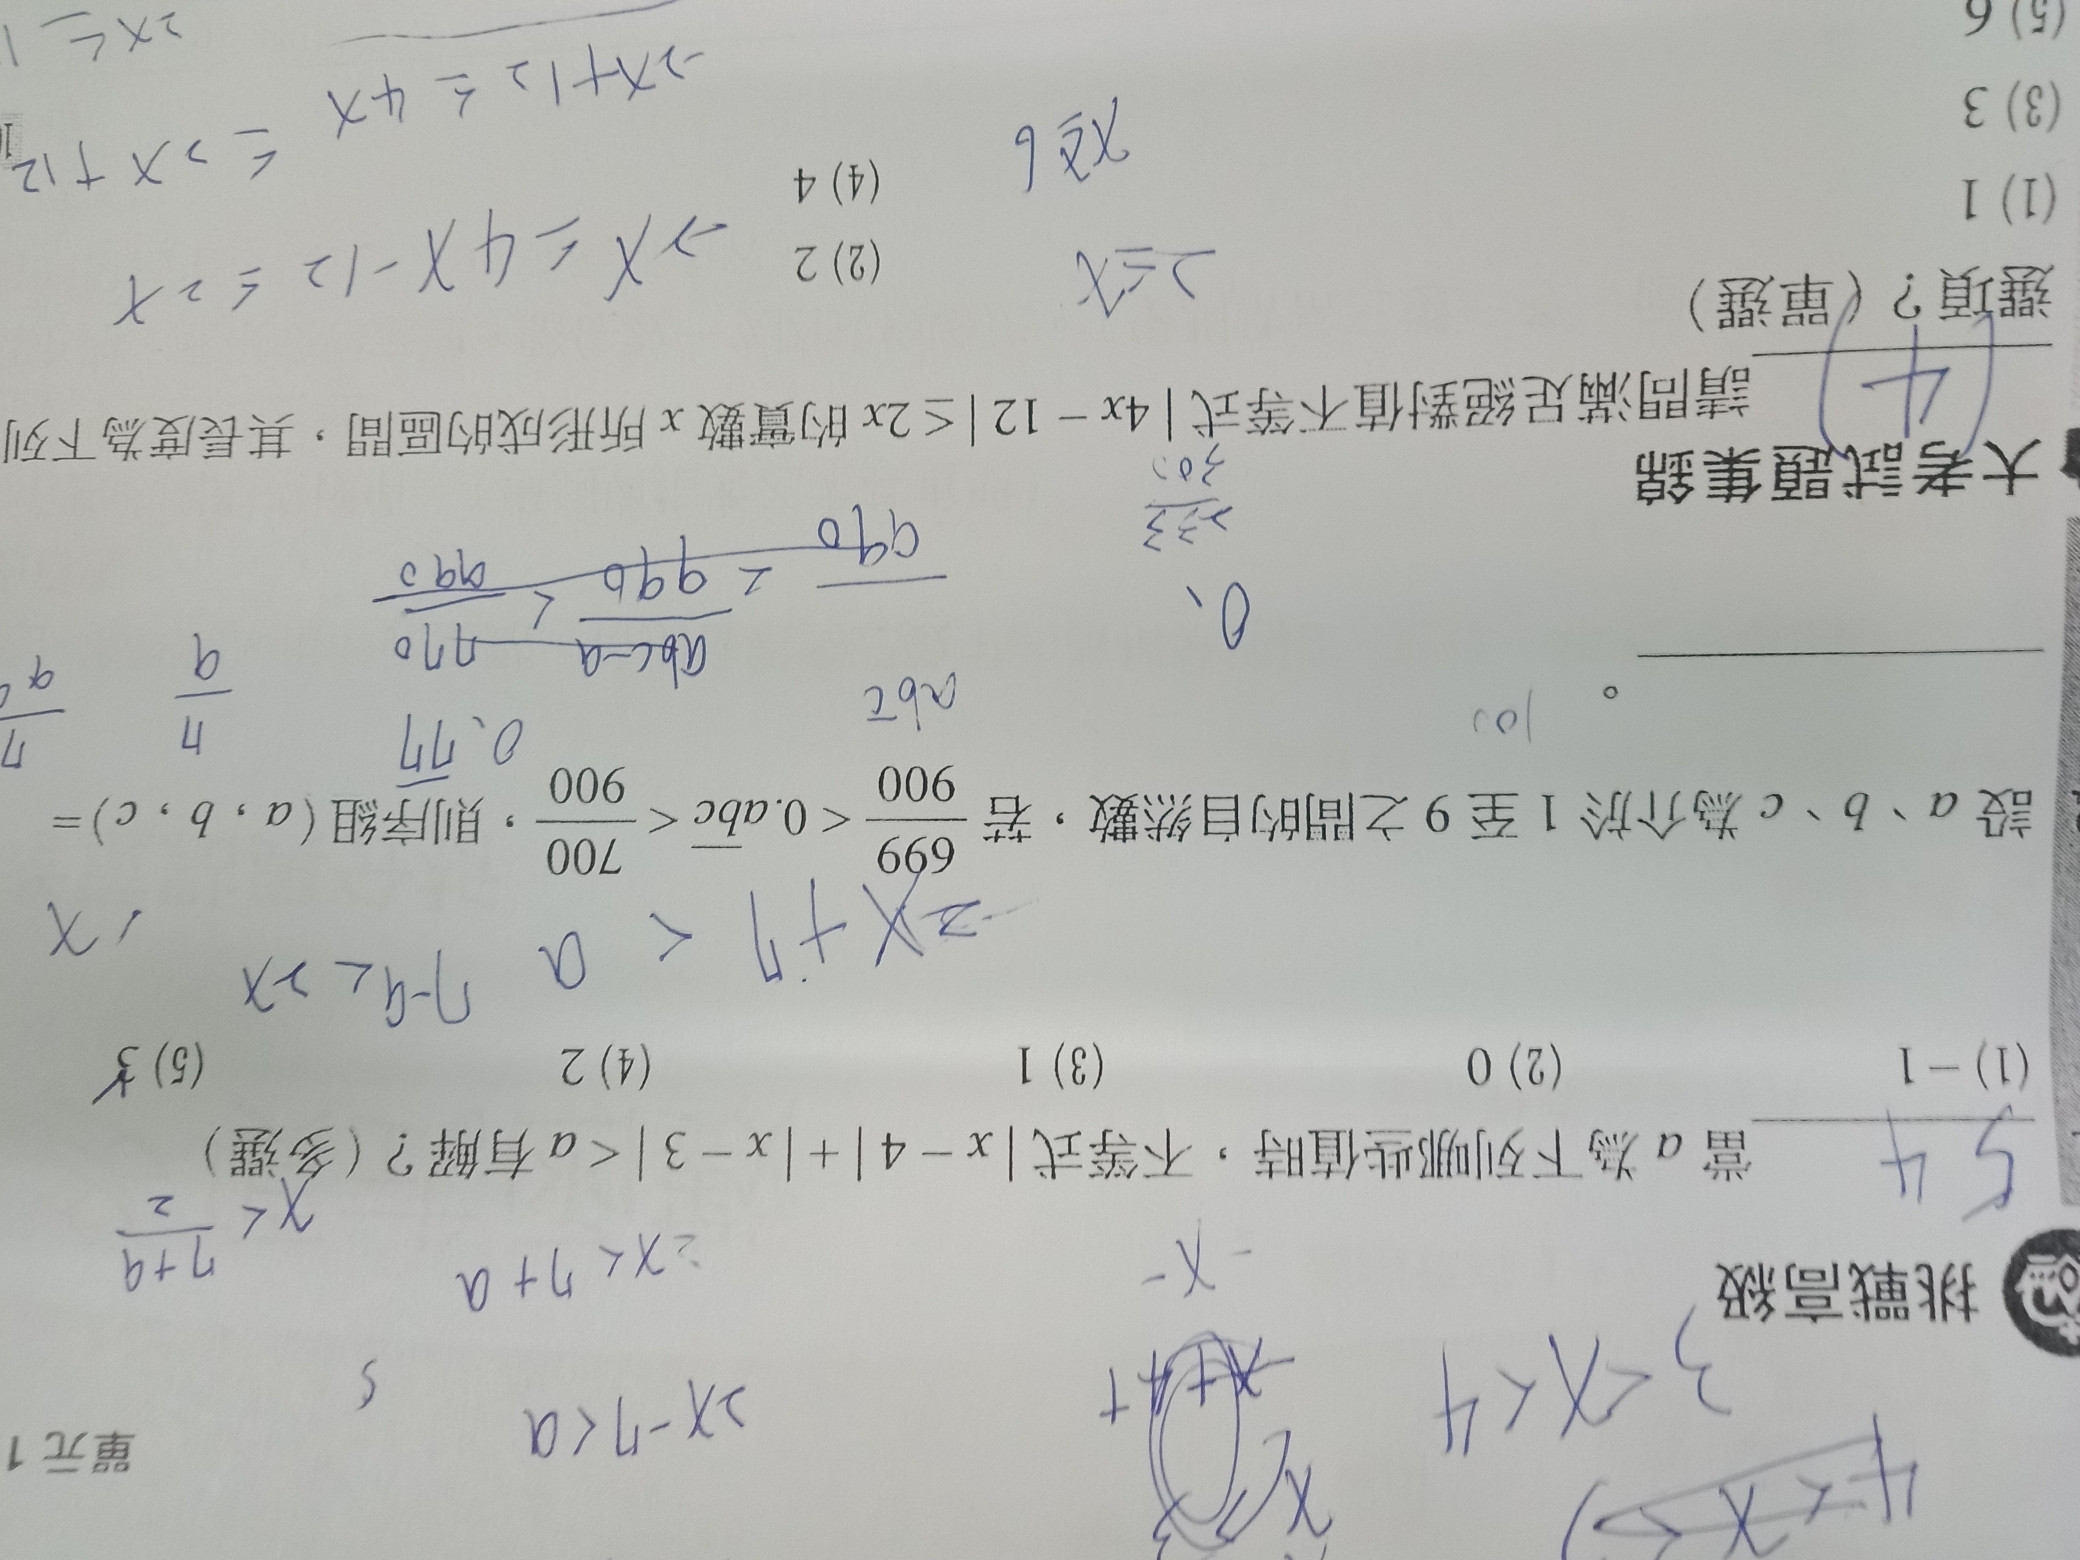 單元 1
4 < x
3 < x < 4
2x - 7 < a
挑戰高級
2x < 7 + a
x < 7+a/2
5 4 當 a 為下列哪些值時，不等式 | x − 4 | + | x − 3 | < a 有解？（多選）
(1) −1 (2) 0 (3) 1 (4) 2 (5) 3
-2x + 7 < a
7-a < 2x
設 a、b、c 為介於 1 至 9 之間的自然數，若 699/900 < 0.abc̅ < 700/900，則序組 (a，b，c) =
。
100
abc
0.77
7/9
abc-a
990
0.
大考試題集錦
(4) 請問滿足絕對值不等式 | 4x − 12 | ≤ 2x 的實數 x 所形成的區間，其長度為下列
選項？（單選）
(1) 1 (2) 2
(3) 3 (4) 4
(5) 6
2 ≤ x
x ≤ 6
-2x ≤ 4x - 12 ≤ 2x
≤ 2x + 12
-2x + 12 ≤ 4x
2x ≤ 1